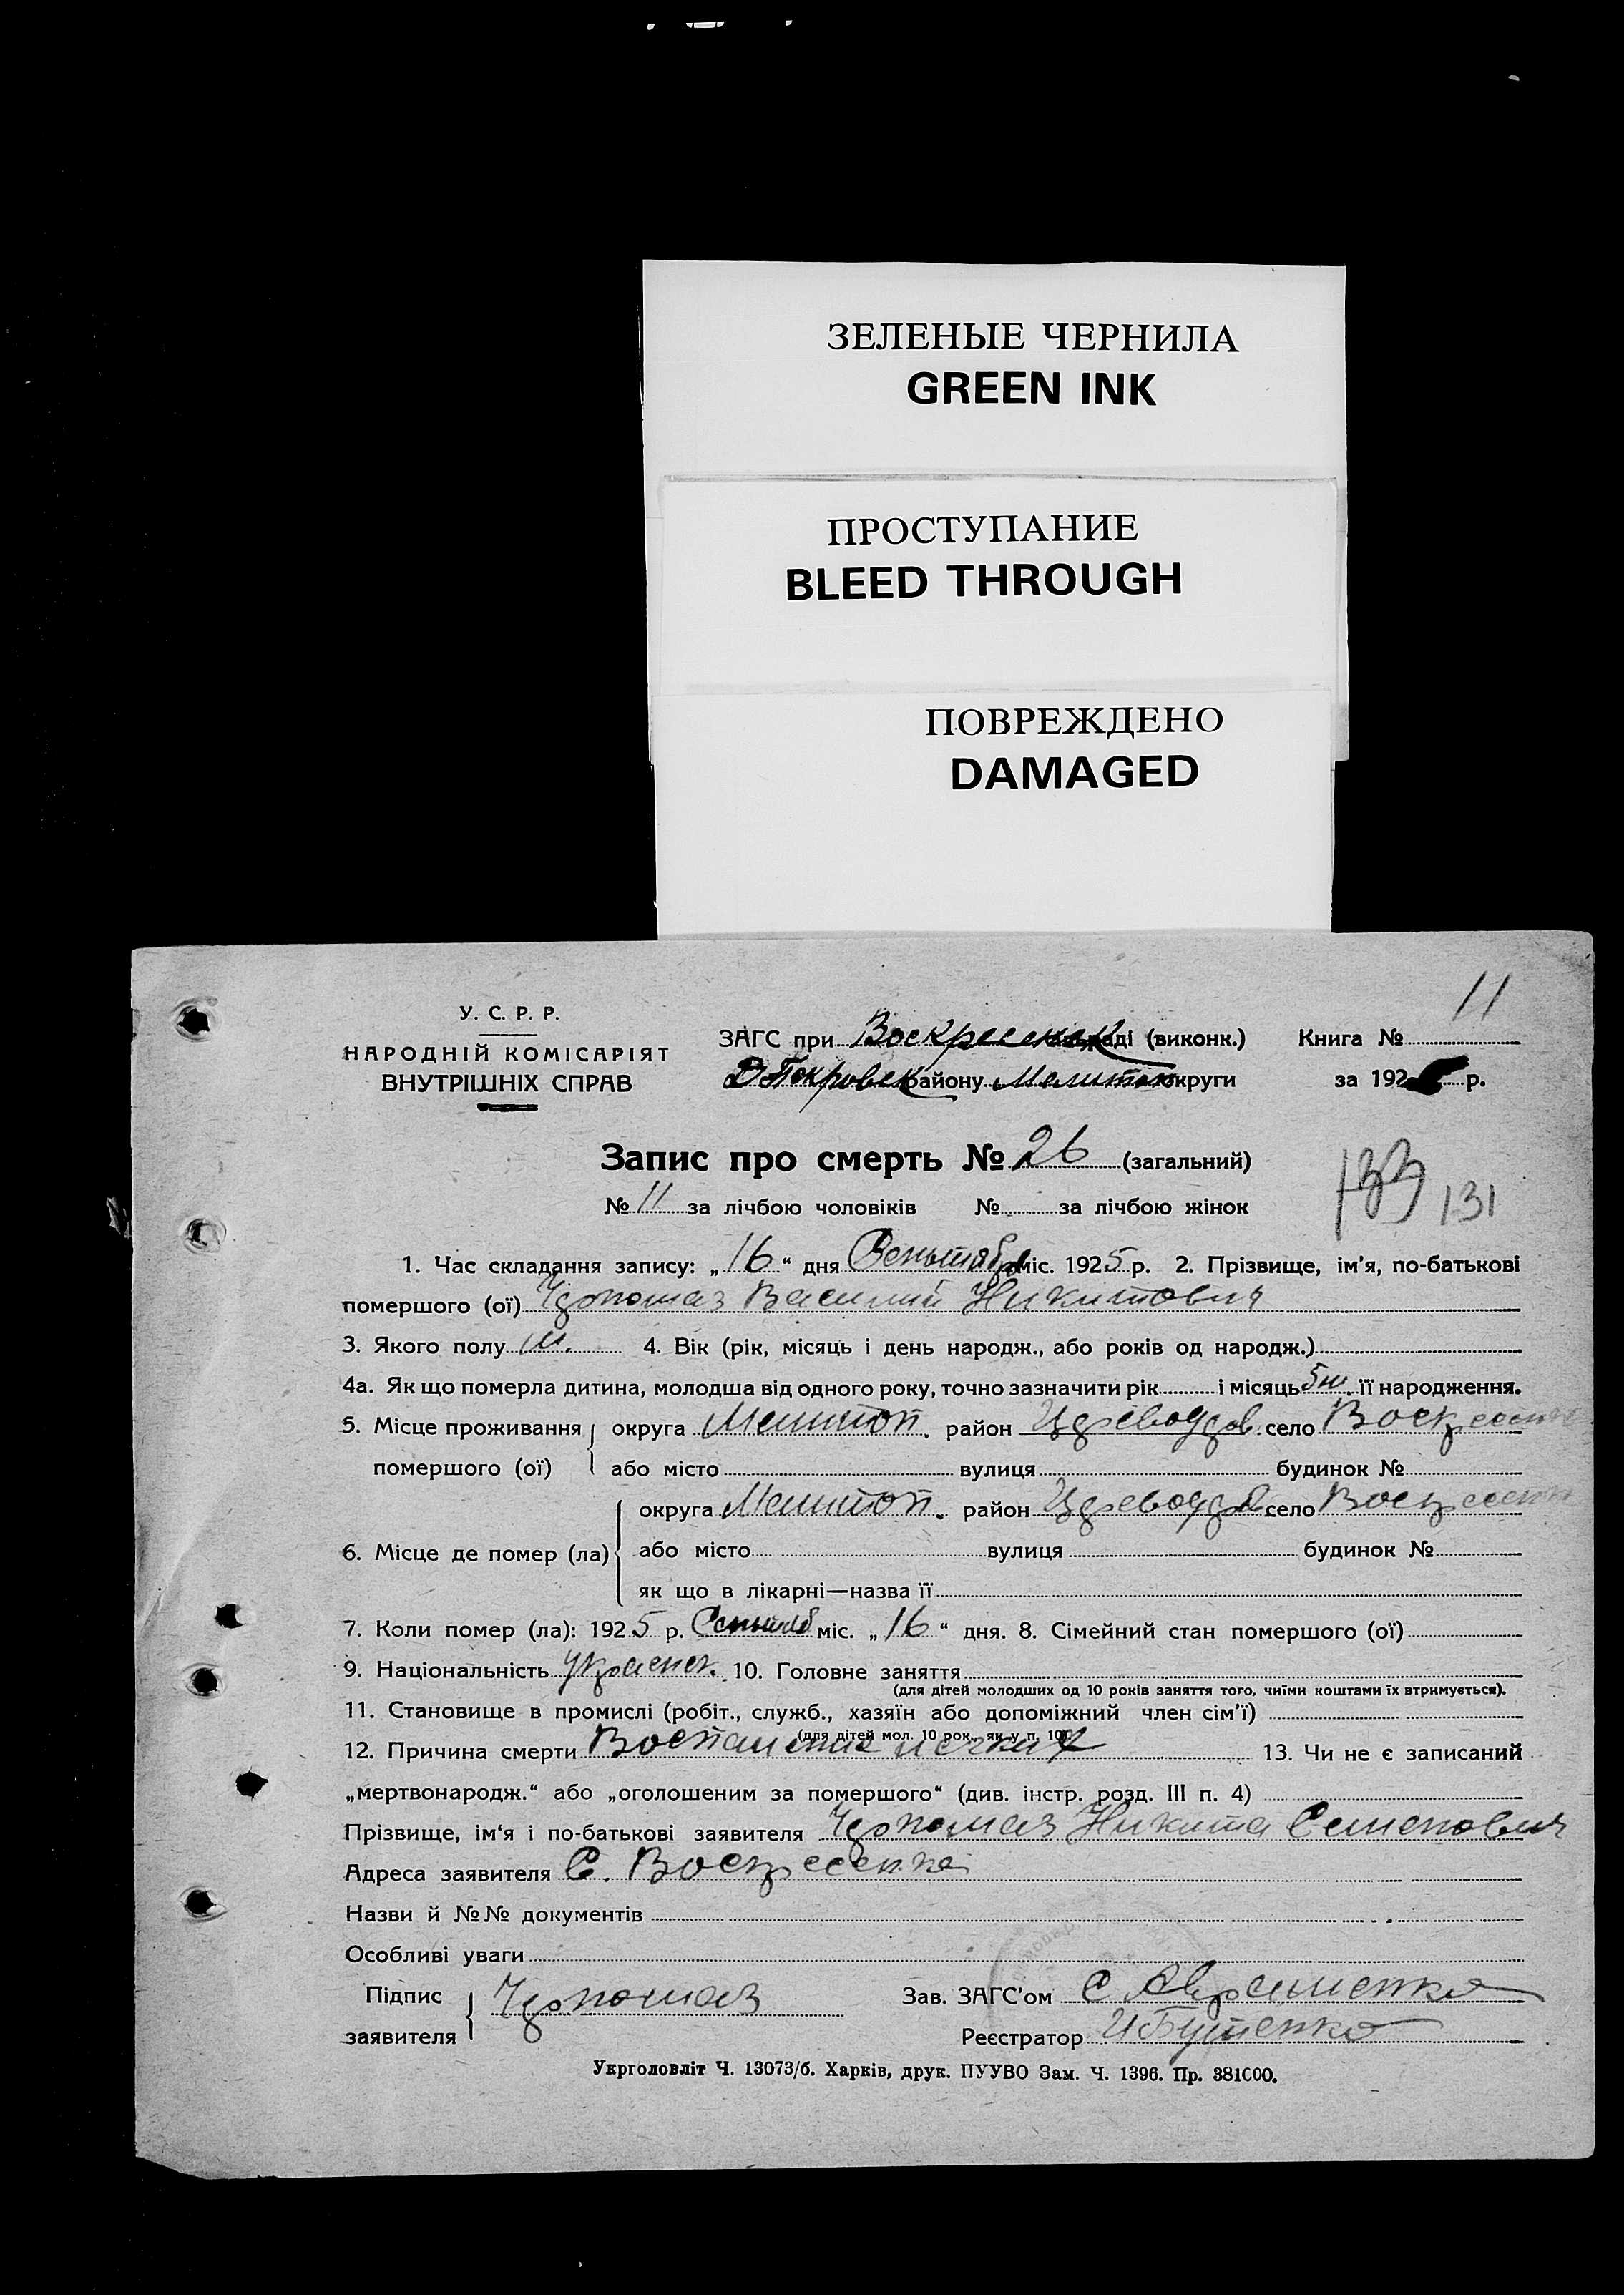 ЗЕЛЕНЫЕ ЧЕРНИЛА
GREEN INK
ПРОСТУПАНИЕ
BLEED THROUGH
ПОВРЕЖДЕНО
DAMAGED
11
У. С. Р. Р.
НАРОДНІЙ КОМІСАРІЯТ
ВНУТРІШНІХ СПРАВ
ЗАГС при Воскресенск раді (виконк.) Книга №
Покровск району Мелитоп округи за 192 р.
Запис про смерть № 26 (загальний)
№ 11 за лічбою чоловіків № за лічбою жінок
133 131
1. Час складання запису: „16“ дня Сентября міс. 1925 р. 2. Прізвище, ім'я, по-батькові
помершого (ої) Василий Никитович
3. Якого полу м. 4. Вік (рік, місяць і день народж., або років од народж.)
4а. Як що померла дитина, молодша від одного року, точно зазначити рік і місяць 5 м. її народження.
5. Місце проживання округа Мелитоп. район село Воскресенк
помершого (ої) або місто вулиця будинок №
округа Мелитоп. район село Воскресенк
6. Місце де помер (ла) або місто вулиця будинок №
як що в лікарні—назва її
7. Коли помер (ла): 1925 р. Сентяб міс. „16“ дня. 8. Сімейний стан помершого (ої)
9. Національність Украенск. 10. Головне заняття
(для дітей молодших од 10 років заняття того, чиїми коштами їх втримується).
11. Становище в промислі (робіт., служб., хазяїн або допоміжний член сім'ї)
(для дітей мол. 10 рок., як у п. 10)
12. Причина смерти 13. Чи не є записаний
„мертвонародж.“ або „оголошеним за помершого“ (див. інстр. розд. III п. 4)
Прізвище, ім'я і по-батькові заявителя Никита Семенович
Адреса заявителя С. Воскресенка
Назви й №№ документів
Особливі уваги
Підпис Зав. ЗАГС'ом С Авраменко
заявителя Реєстратор И Бутенко
Укрголовліт Ч. 13073/б. Харків, друк. ПУУВО Зам. Ч. 1396. Пр. 381000.